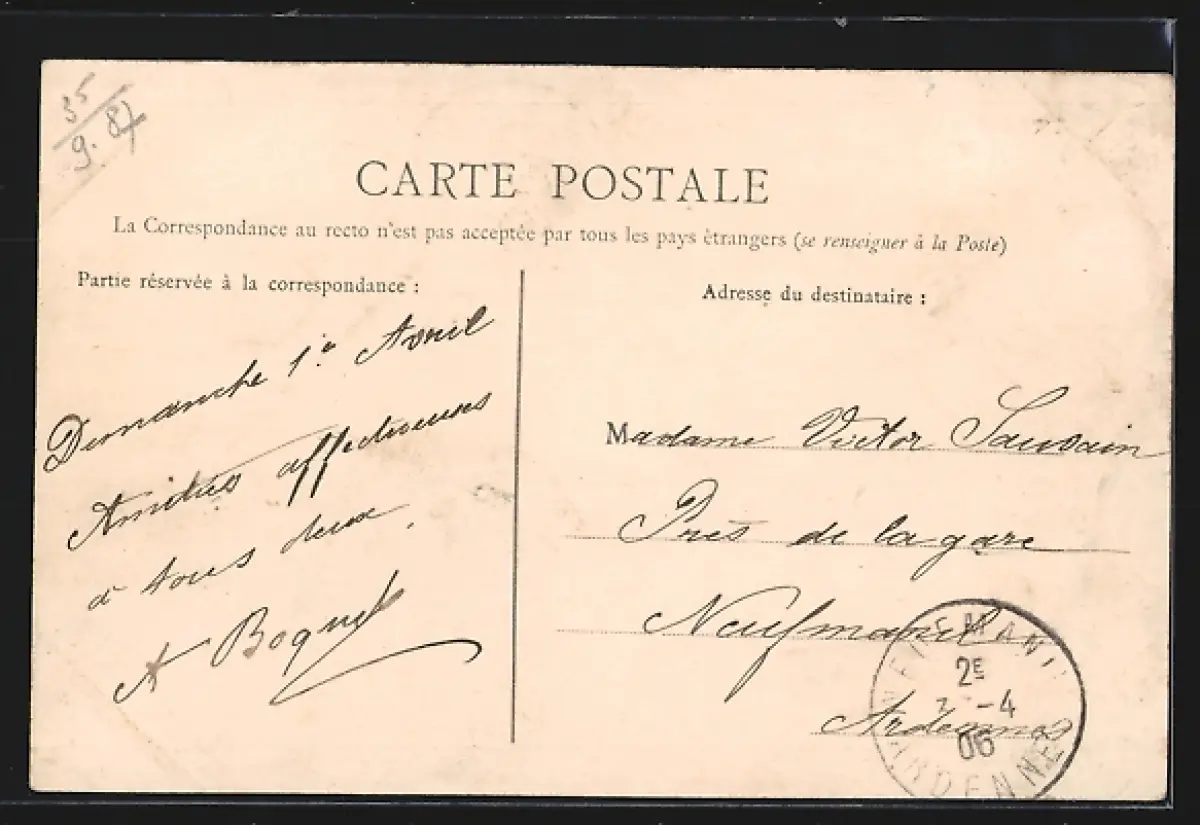 35
9. 87
CARTE POSTALE
La Correspondance au recto n'est pas acceptée par tous les pays étrangers (se renseigner à la Poste)
Partie réservée à la correspondance :
Dimanche 1er Avril
Amitiés affectueuses
à tous deux.
A Boquet
Adresse du destinataire :
Madame Victor
Près de la gare
Neufmanil
Ardennes
2E
-4
06
ARDENNES